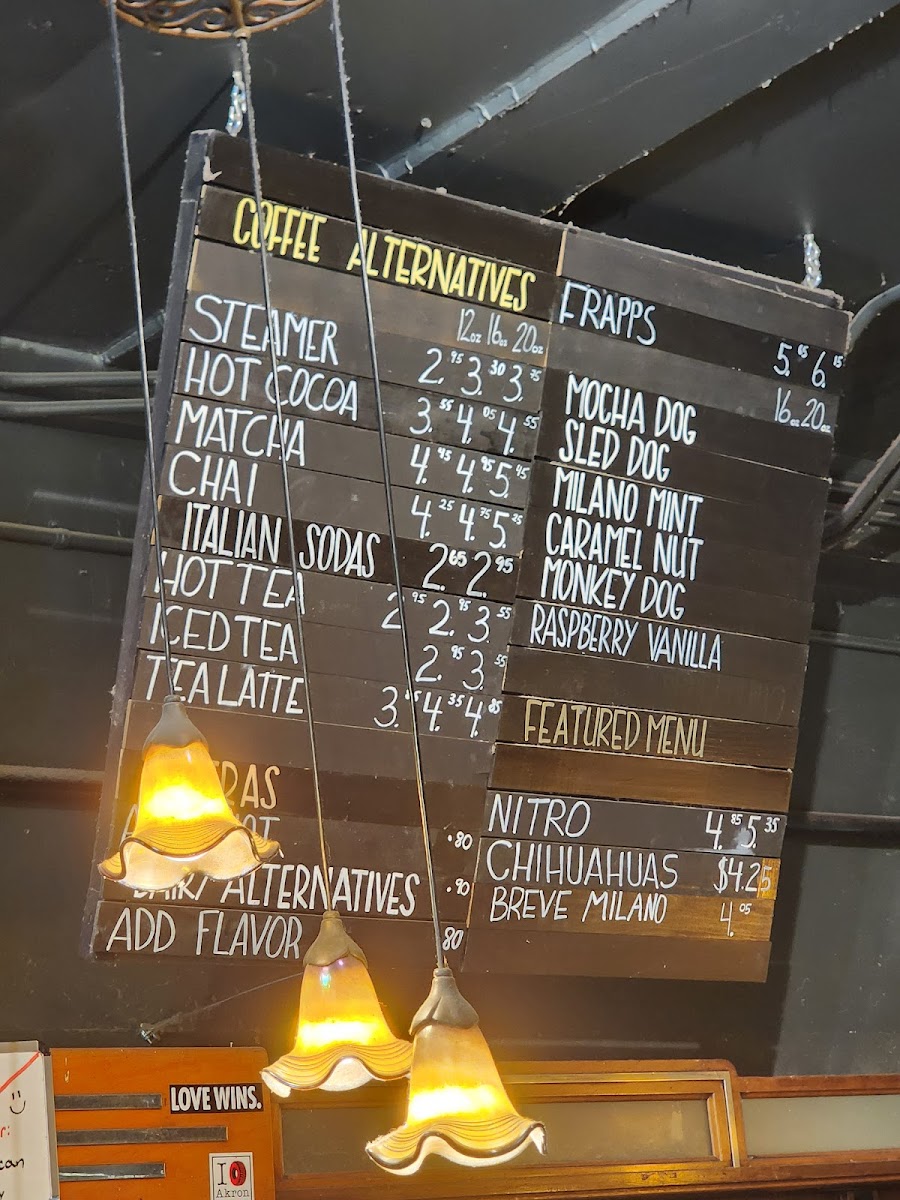 COFFEE ALTERNATIVES
12oz 16oz 20oz
STEAMER 2.95 3.30 3.75
HOT COCOA 3.55 4.05 4.55
MATCHA 4.45 4.95 5.45
CHAI 4.25 4.75 5.25
ITALIAN SODAS 2.65 2.95
HOT TEA 2.95 2.95 3.55
ICED TEA 2.95 3.55
TEA LATTE 3. 4.35 4.85
.80
DAIRY ALTERNATIVES .90
ADD FLAVOR 80
FRAPPS
5.65 6.15
16oz 20oz
MOCHA DOG
SLED DOG
MILANO MINT
CARAMEL NUT
MONKEY DOG
RASPBERRY VANILLA
FEATURED MENU
NITRO 4.85 5.35
CHIHUAHUAS $4.25
BREVE MILANO 4.05
LOVE WINS.
I
Akron